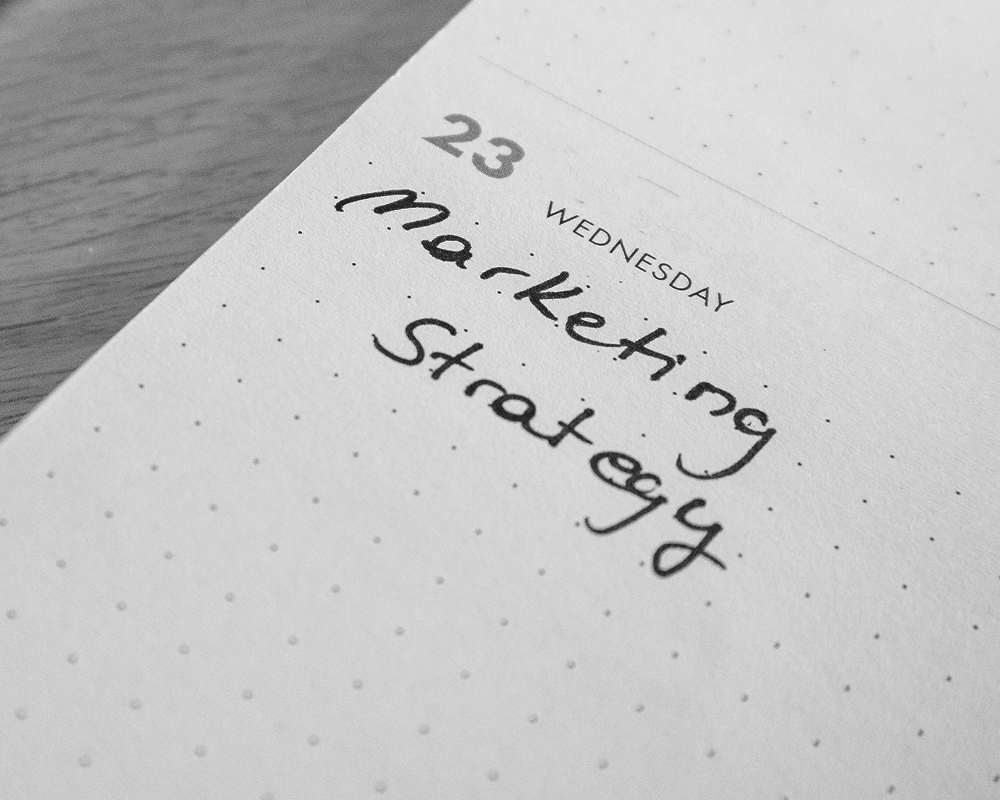 23
WEDNESDAY
Marketing
Strategy